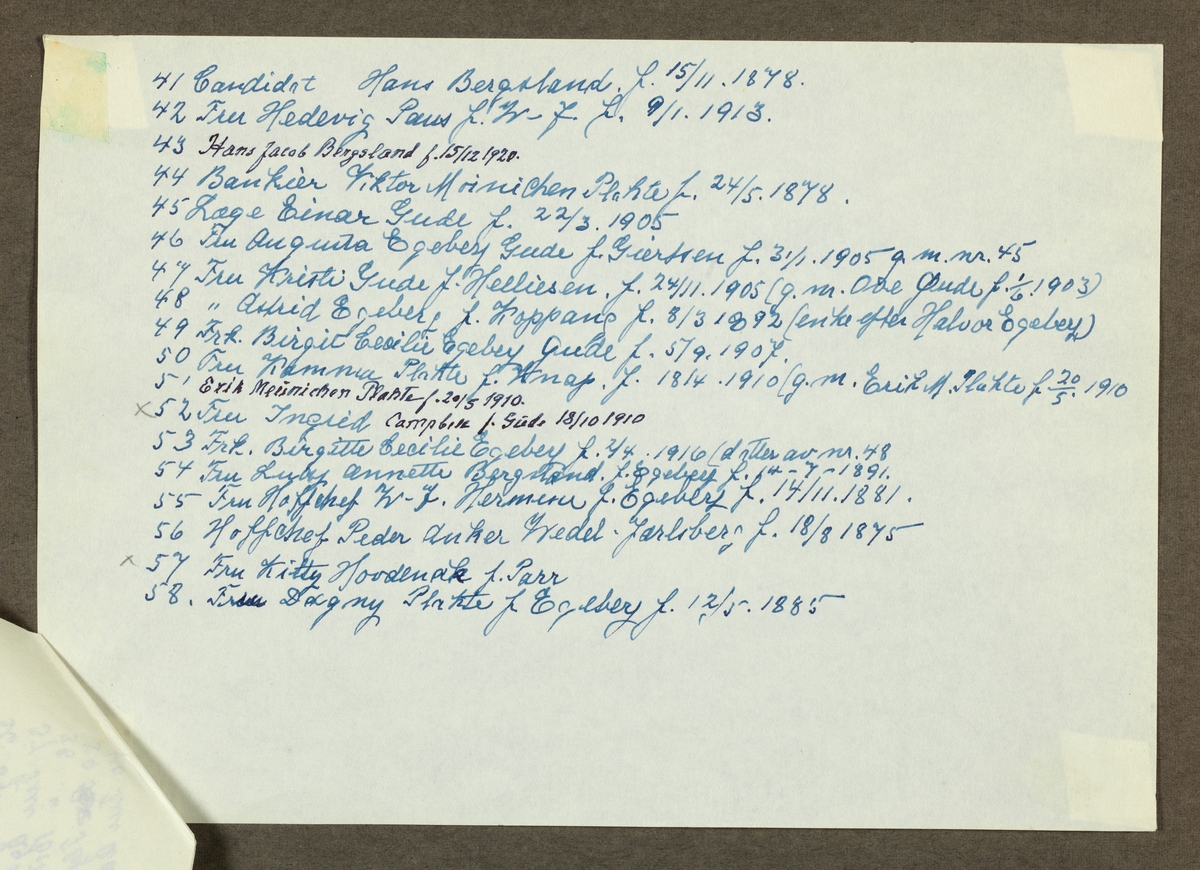 41 Candidat Hans Bergsland. f. 15/11. 1878.
42 Fru Hedevig Paus f. W-J. f. 9/1. 1913.
43 Hans Jacob Bergsland f. 15/12 1920.
44 Bankier Viktor Moinichen Plahte f. 24/5. 1878.
45 Læge Einar Gude f. 22/3. 1905
46 Fru Augusta Egeberg Gude f. Gierssen f. 31/1. 1905 g. m. nr. 45
47 Fru Kristi Gude f. Helliesen. f. 24/11. 1905 (g. m. Ove Gude f. 1/6. 1903)
48 " Astrid Egeberg f. Koppang f. 8/3 1892 (enke efter Halvor Egeberg)
49 Frk. Birgit Cecilie Egeberg Gude f. 5/9. 1907.
50 Fru Kamma Plahte f. Knap. f. 18/4. 1910 (g. m. Erik M. Plahte f. 20/5. 1910
51 Erik Meinichen Plahte f. 20/5 1910.
x 52 Fru Ingrid Campbell f. Gude 18/10 1910
53 Frk. Birgitte Cecilie Egeberg f. 2/4. 1916 (datter av nr. 48
54 Fru Lucy Annette Bergsland. f. Egeberg f. 14-7-1891.
55 Fru Hoffchef W-J. Hermine f. Egeberg f. 14/11. 1881.
56 Hoffchef Peder Anker Wedel-Jarlsberg f. 18/8 1875
x 57 Fru Kitty Hoodenak f. Parr
58. Fru Dagny Plahte f Egeberg f. 12/5. 1885